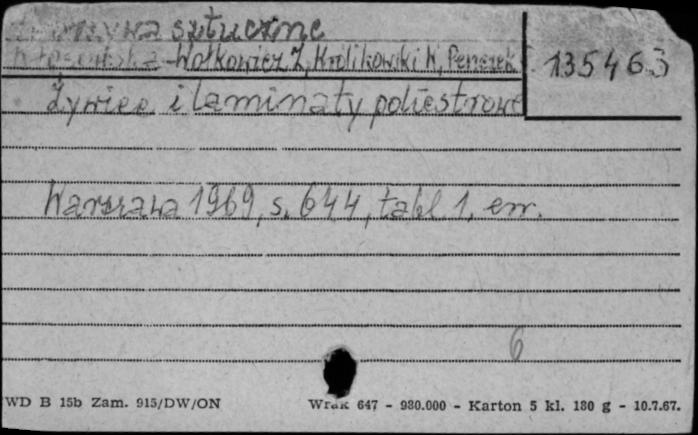 sztuczne
Wołkowicz Z, Królikowski W, Penczek
135463
Żywice i laminaty poliestrowe
Warszawa 1969, s. 644, tabl. 1, err.
6
WD B 15b Zam. 915/DW/ON Wrak 647 - 980.000 - Karton 5 kl. 180 g - 10.7.67.